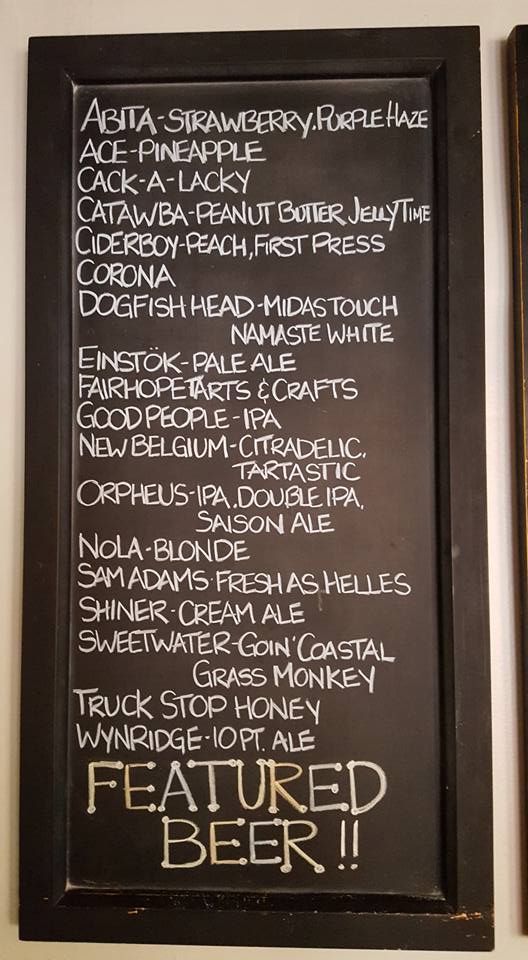 ABITA-STRAWBERRY, PURPLE HAZE
ACE-PINEAPPLE
CACK-A-LACKY
CATAWBA-PEANUT BUTTER JELLY TIME
CIDERBOY-PEACH, FIRST PRESS
CORONA
DOGFISH HEAD-MIDAS TOUCH
NAMASTE WHITE
EINSTÖK-PALE ALE
FAIRHOPE TARTS & CRAFTS
GOOD PEOPLE-IPA
NEW BELGIUM-CITRADELIC,
TARTASTIC
ORPHEUS-IPA, DOUBLE IPA,
SAISON ALE
NOLA-BLONDE
SAM ADAMS-FRESH AS HELLES
SHINER-CREAM ALE
SWEETWATER-GOIN' COASTAL
GRASS MONKEY
TRUCK STOP HONEY
WYNRIDGE-10 PT. ALE
FEATURED
BEER!!